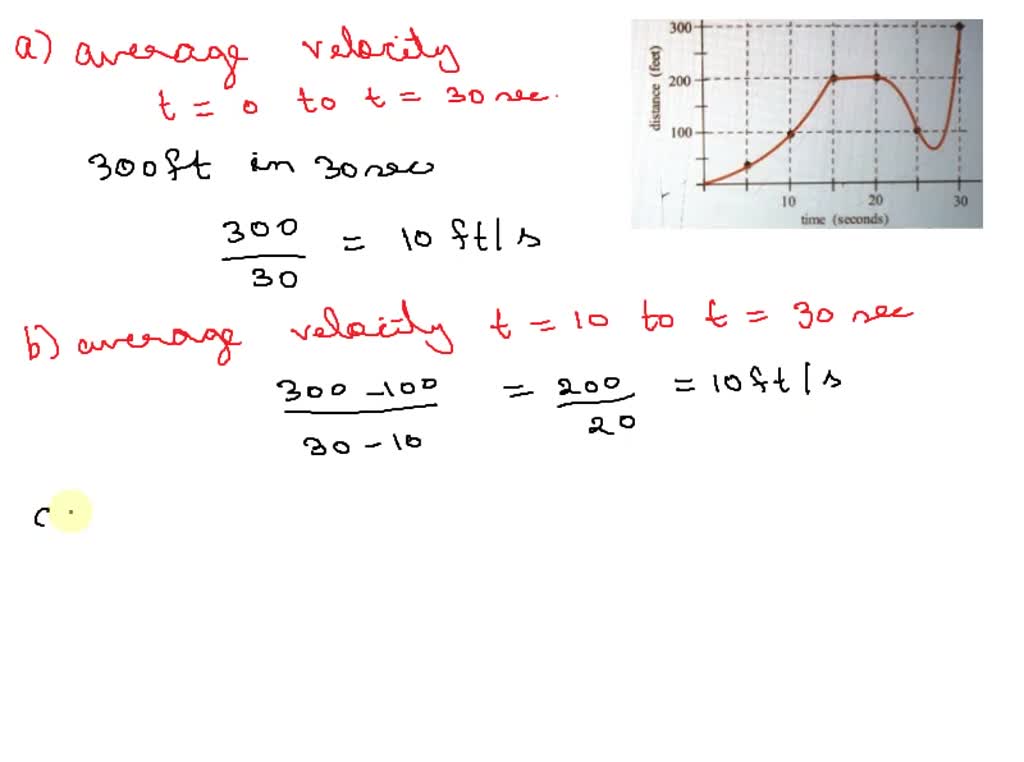 a) average velocity
t = 0 to t = 30 sec.
300ft in 30 sec
300
30
= 10 ft/s
b) average velocity t = 10 to t = 30 sec
300 - 100
30 - 10
= 200
20
= 10 ft/s
c
distance (feet)
300
200
100
10 20 30
time (seconds)